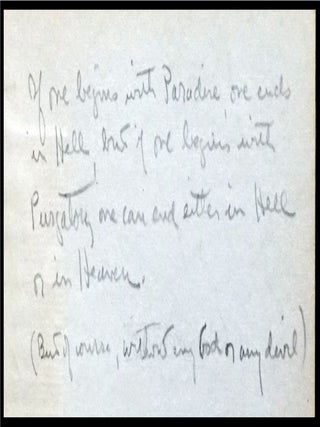 If one begins with Paradise one ends
in Hell, but if one begins with
Purgatory one can end either in Hell
or in Heaven.
(But of course, without any God or any devil)